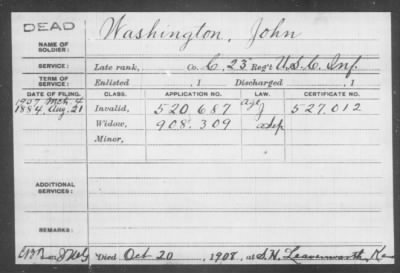 DEAD
Washington, John
NAME OF
SOLDIER:
SERVICE:
Late rank, Co. C, 23 Reg't U.S.C. Inf.
TERM OF
SERVICE:
Enlisted , 1 Discharged , 1
DATE OF FILING. CLASS. APPLICATION NO. LAW. CERTIFICATE NO.
1907 Mch. 4
1884 Aug. 21 Invalid, 520.687 Age 527.012
Widow, 908.309
Minor,
ADDITIONAL
SERVICES:
REMARKS:
Died Oct 20, 1908, at S.H. Leavenworth, Kas